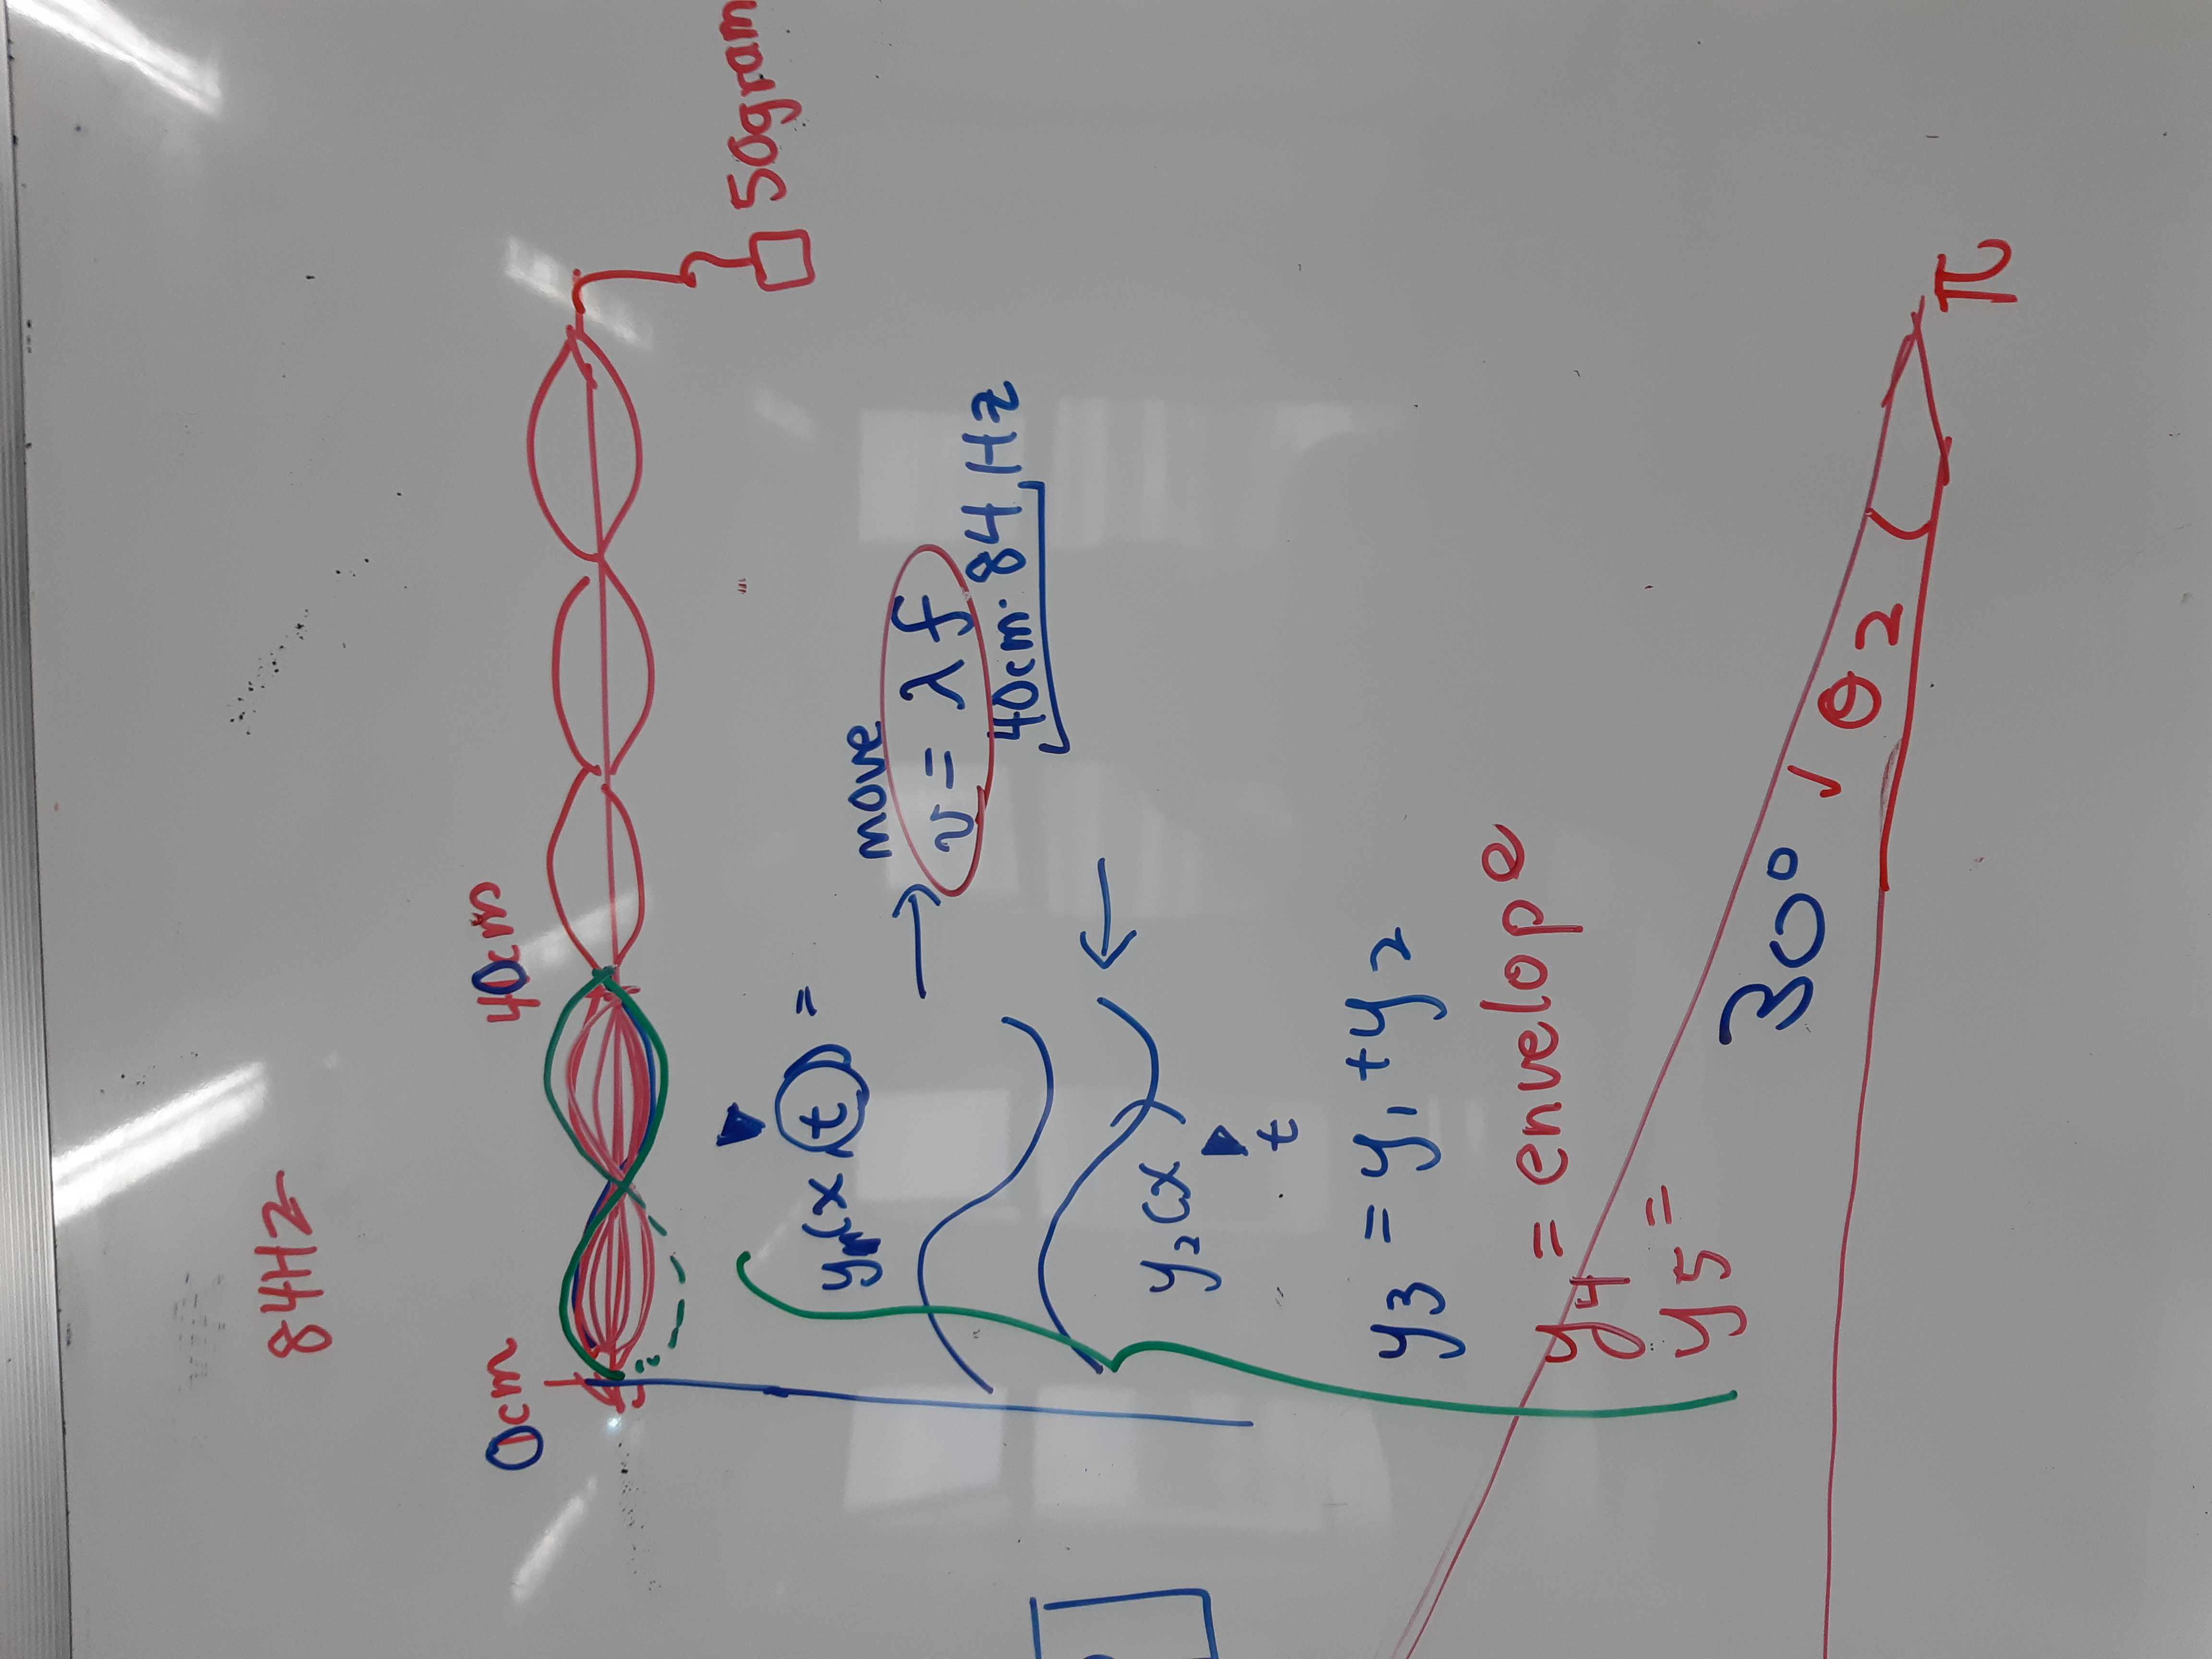 84Hz
0cm 40cm
50gram
y1(x,t) =
move
v = λ f
40cm. 84 Hz
y2(x
t
y3 = y1 + y2
y4 = envelope
y5 =
30° , θ2
π